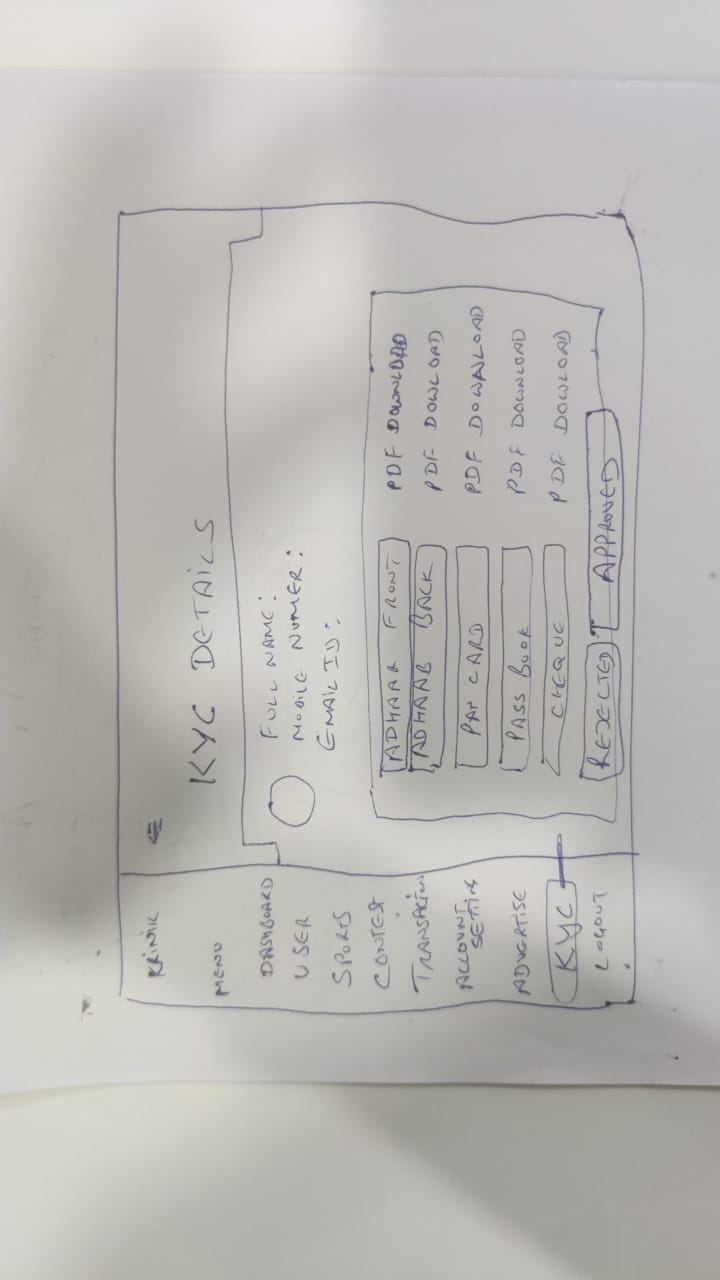 KRINIK
MENU
DASHBOARD
USER
SPORTS
CONTEST
TRANSACTION
ACCOUNT
SETTING
ADVERTISE
KYC
LOGOUT
KYC DETAILS
FULL NAME:
MOBILE NUMER:
EMAIL ID:
ADHAAR FRONT PDF DOWNLOAD
ADHAAR BACK PDF DOWLOAD
PAN CARD PDF DOWNLOAD
PASS BOOK PDF DOWNLOAD
CHEQUE PDF DOWLOAD
REJECTED APPROVED